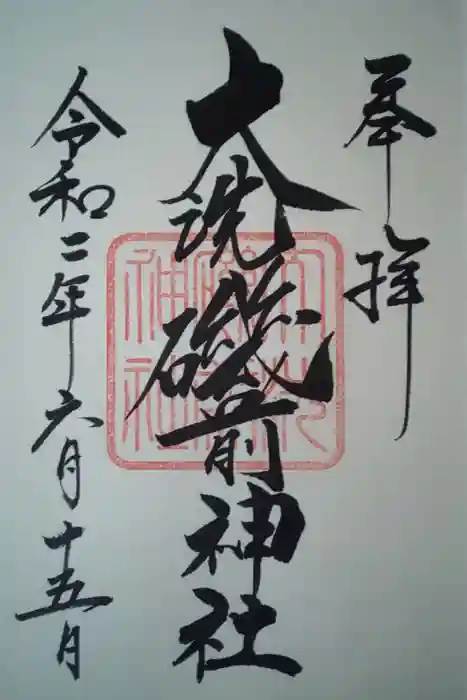 奉拝
大洗磯前神社
令和二年六月十五月